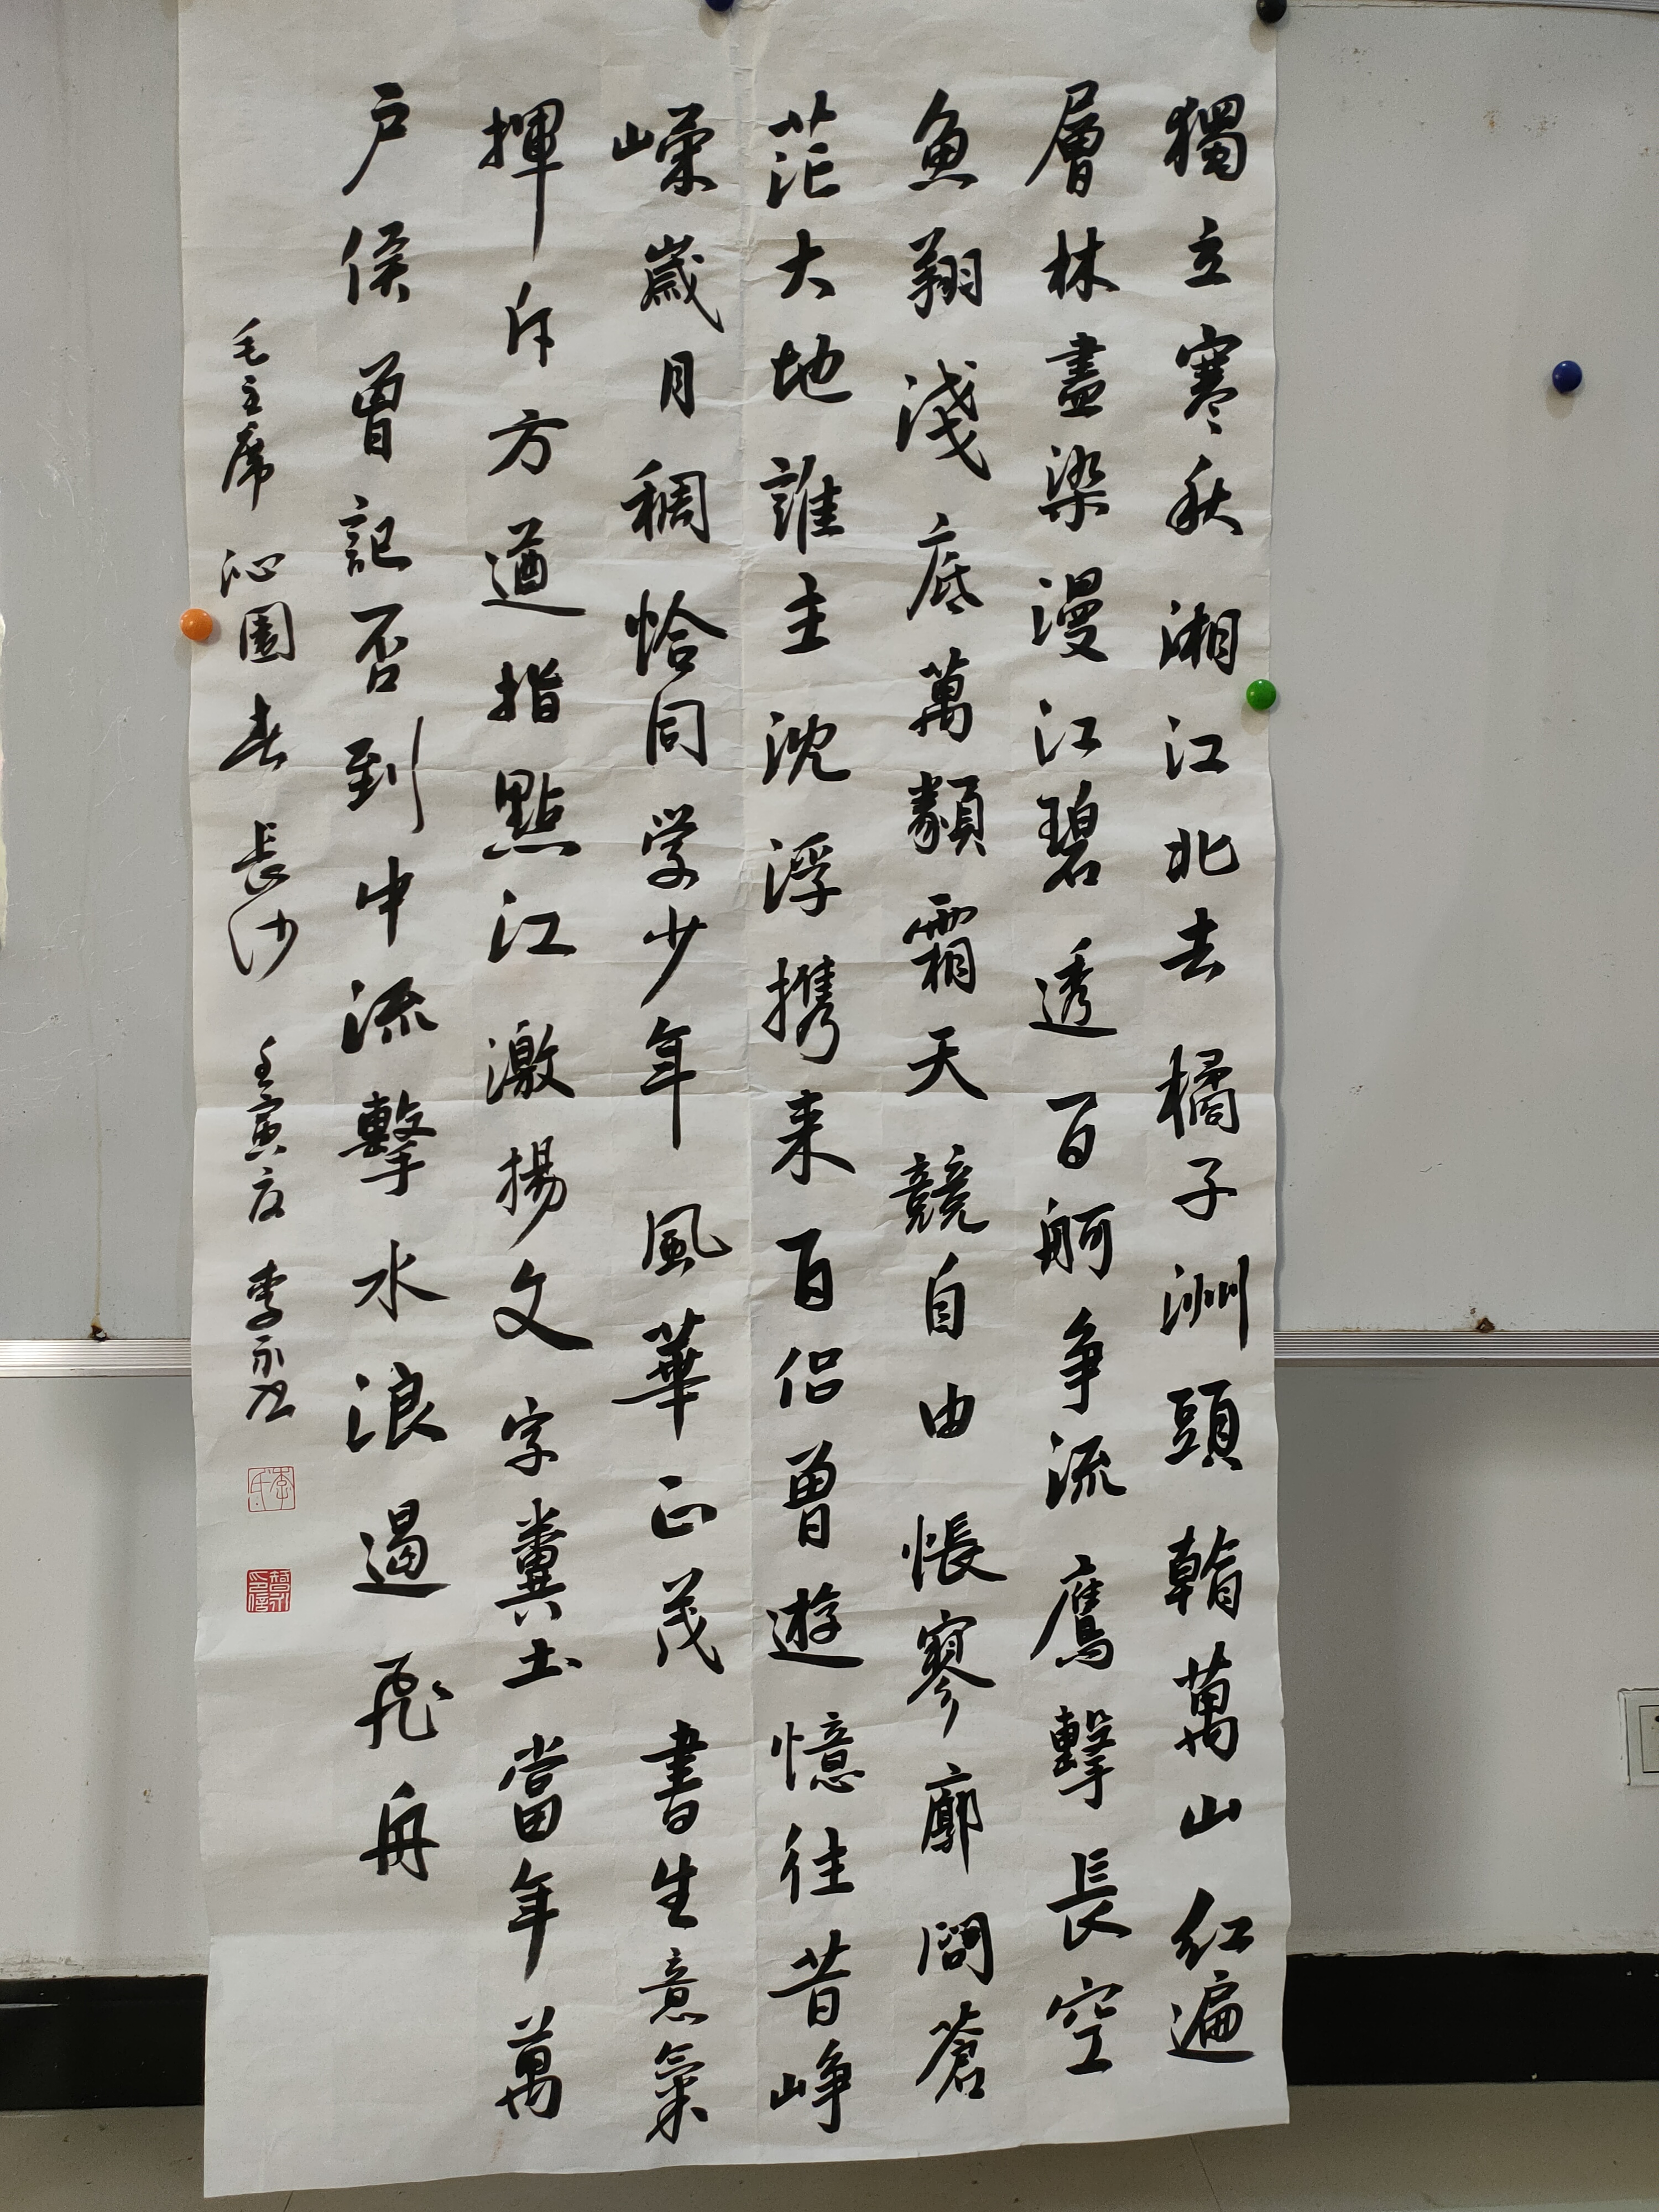 獨立寒秋湘江北去橘子洲頭看萬山红遍
層林盡染漫江碧透百舸争流鷹擊長空
魚翔淺底萬類霜天競自由悵寥廓問蒼
茫大地誰主沈浮携来百侣曾遊憶往昔峥
嶸嵗月稠恰同学少年風華正茂書生意氣
揮斥方遒指點江激揚文字糞土當年萬
户侯曾記否到中流擊水浪遏飛舟
毛主席 沁園春 長沙 壬寅夏 李永
李氏